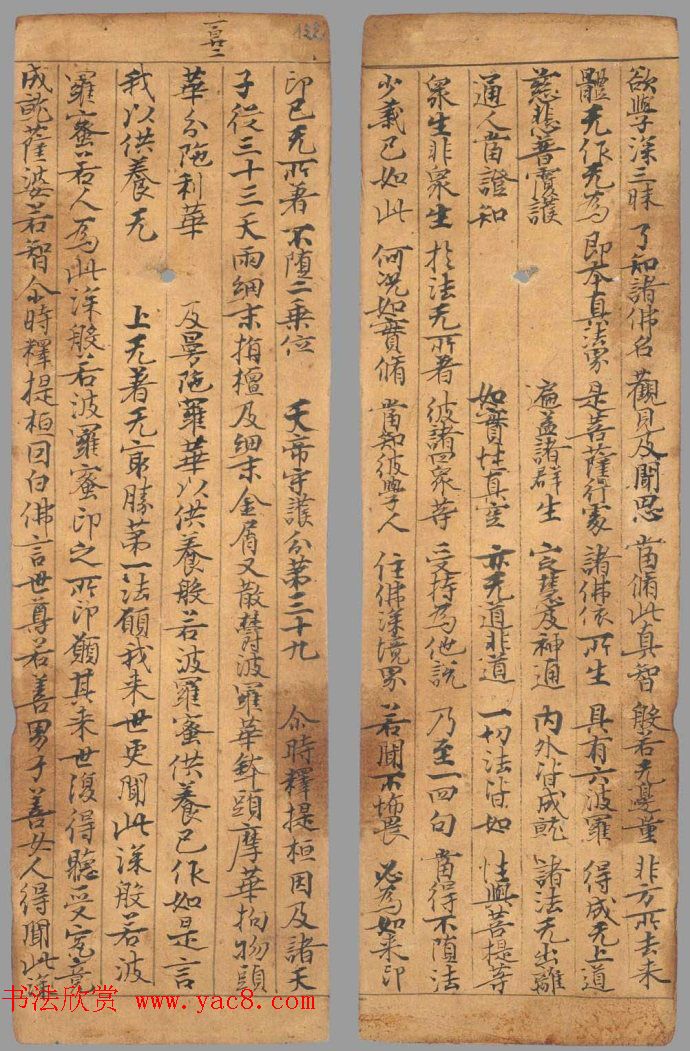 欲學深三昧 了知諸佛名 觀見及聞思 當脩此真智 般若无邊量 非方所去来
體无作无為 即本真法界 是菩薩行處 諸佛依所生 具有六波羅 得成无上道
慈悲普實護 遍益諸群生 定慧及神通 內外皆成就 諸法无出離
通人當證知 如實性真空 亦无道非道 一切法皆如 性與菩提等
衆生非衆生 於法无所著 彼諸四衆等 受持為他說 乃至一四句 當得不墮法
少義已如此 何況如實脩 當知彼學人 住佛深境界 若聞不怖畏 必為如来印
一百二
印已无所著 不墮二乗位 天帝守護分第三十九 尒時釋提桓因及諸天
子從三十三天雨細末栴檀及細末金屑又散欝波羅華鉢頭摩華拘物頭
華分陁利華 及曼陁羅華以供養般若波羅蜜供養已作如是言
我以供養无 上无著无冣勝苐一法願我来世更聞此深般若波
羅蜜若人為此深般若波羅蜜印之所印願其来世復得聽受究竟
成就薩婆若智尒時釋提桓因白佛言世尊若善男子善女人得聞此深
书法欣赏 www.yac8.com